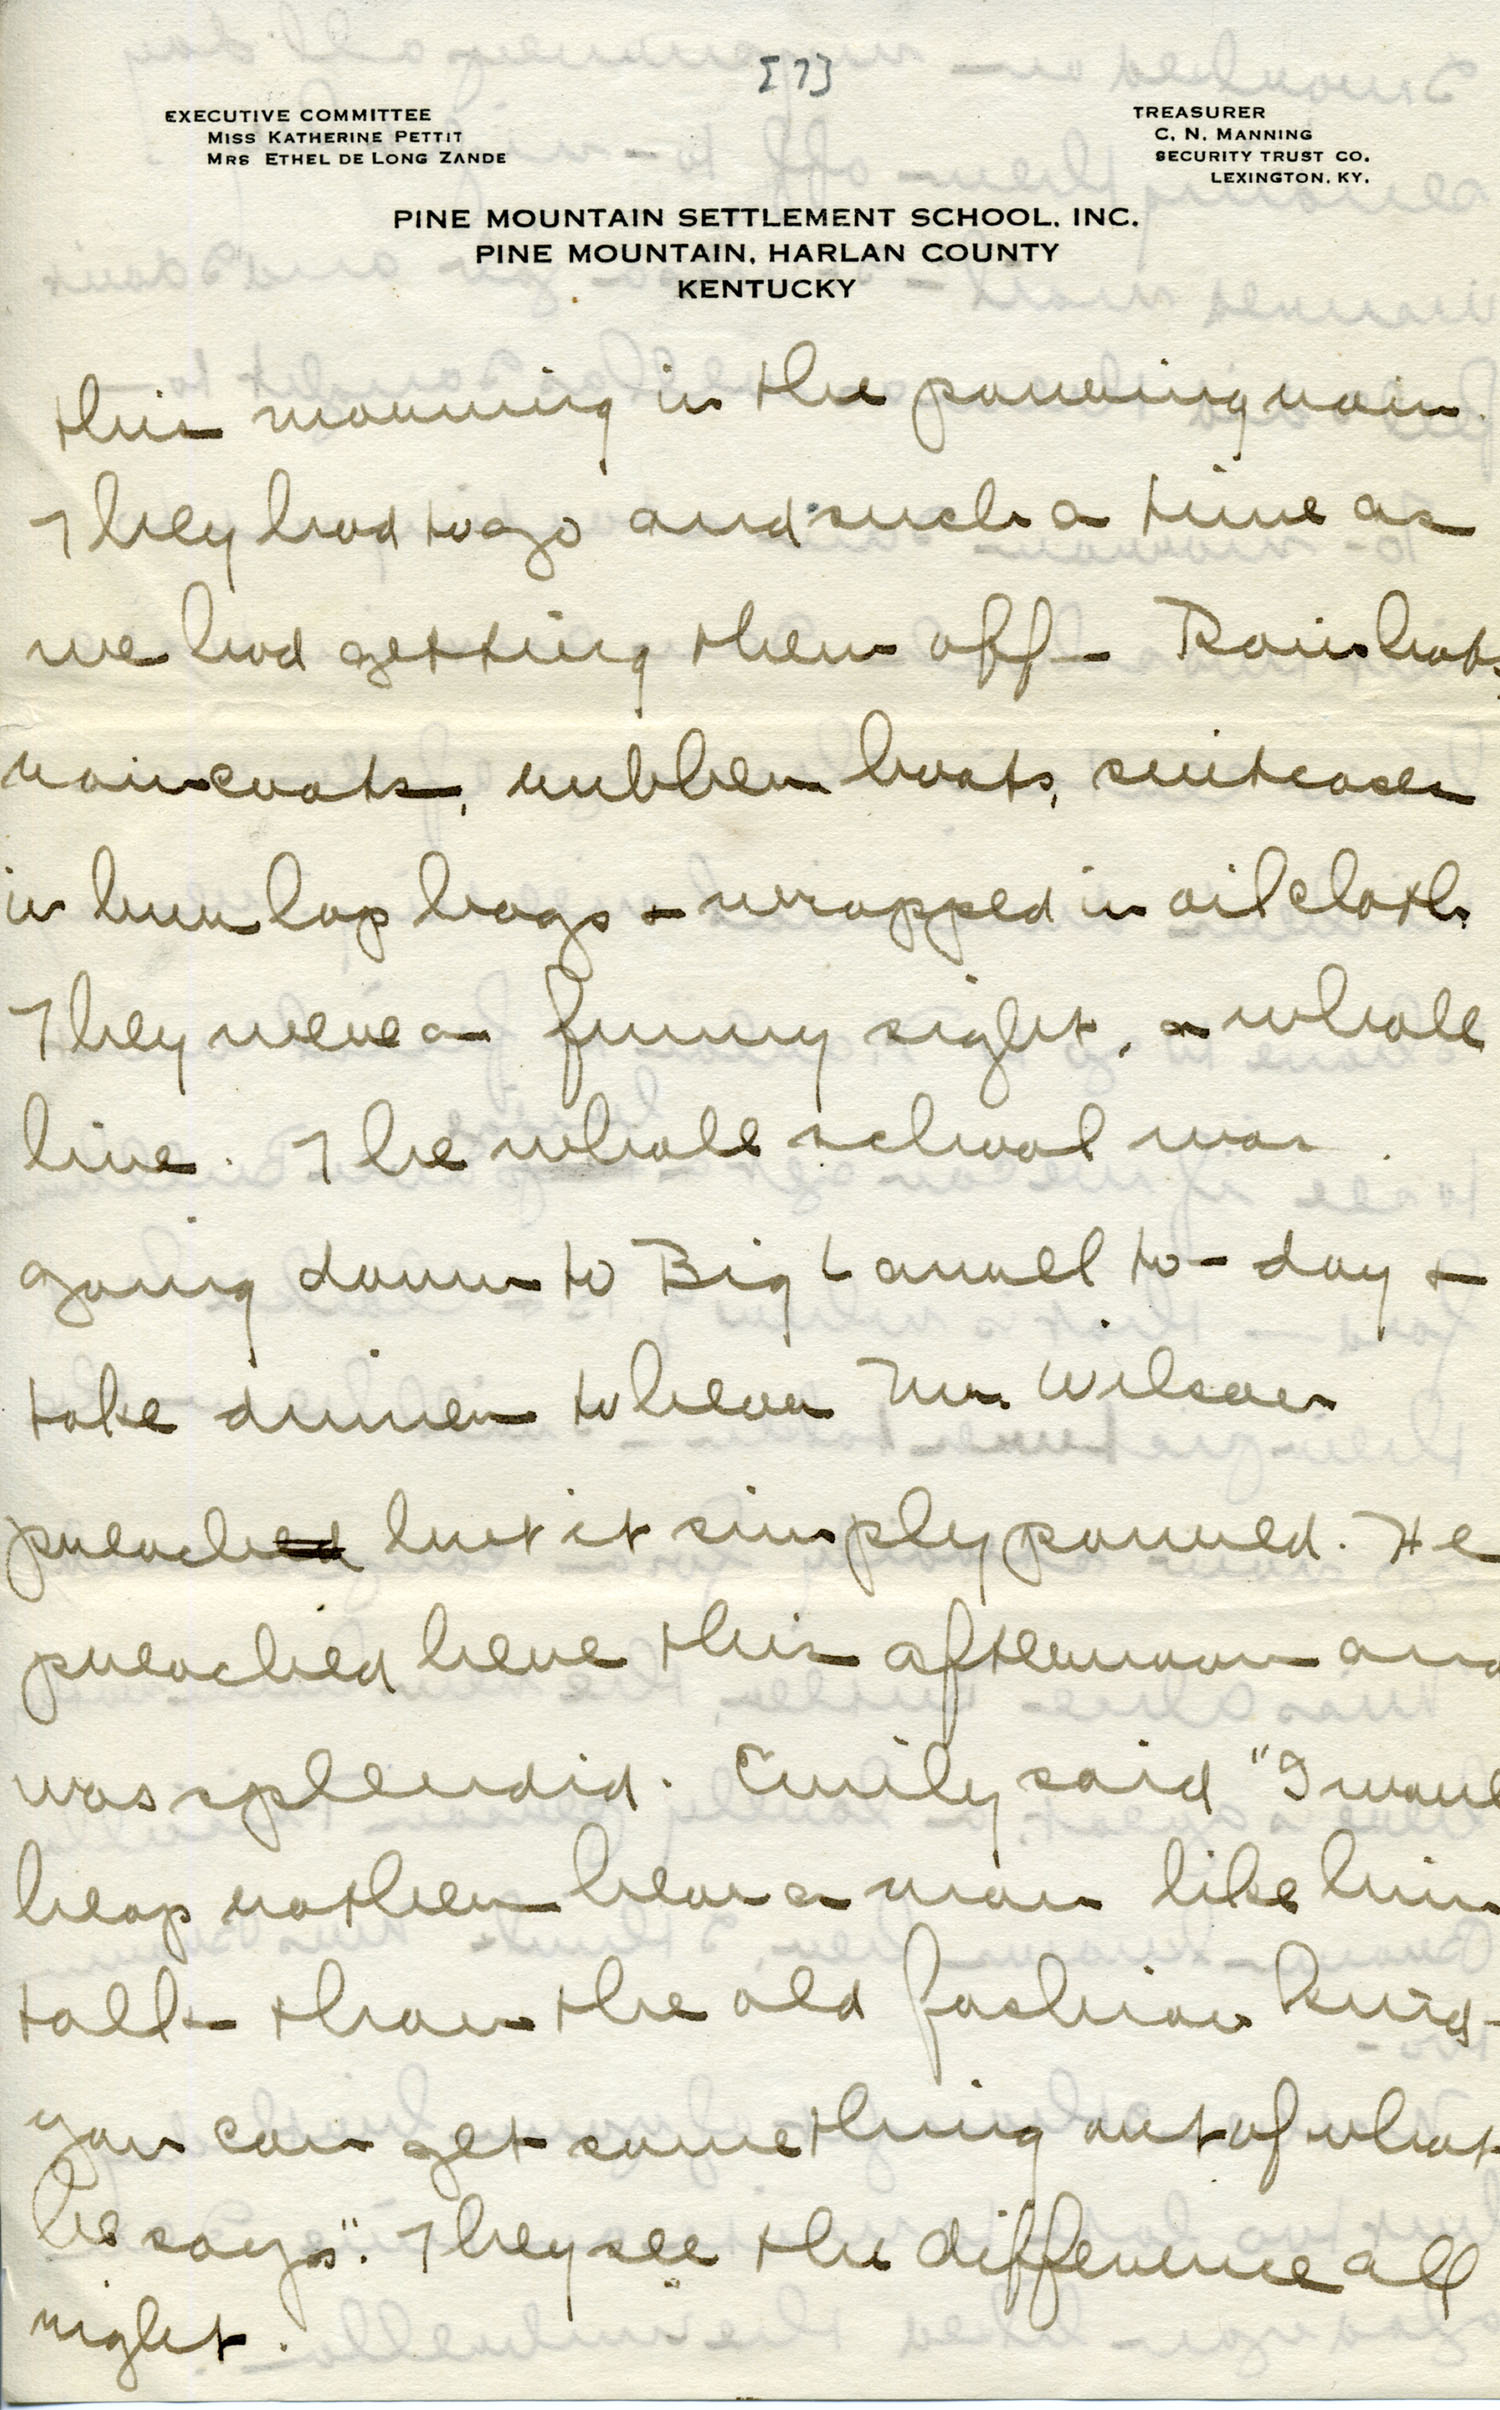 [7]
EXECUTIVE COMMITTEE
MISS KATHERINE PETTIT
MRS ETHEL DE LONG ZANDE
TREASURER
C. N. MANNING
SECURITY TRUST CO.
LEXINGTON, KY.
PINE MOUNTAIN SETTLEMENT SCHOOL, INC.
PINE MOUNTAIN, HARLAN COUNTY
KENTUCKY
this morning in the pouring rain.
They had to go and such a time as
we had getting them off – Rain hats,
raincoats, rubber boots, suitcases
in burlap bags & wrapped in oilcloth.
They were a funny sight, a whole
line. The whole school was
going down to Big Laurel to-day &
take dinner to hear Mr. Wilson
preached but it simply poured. He
preached here this afternoon and
was splendid. Emily said "I would
heap rather hear a man like him
talk than the old fashion kind –
you can get something out of what
he says". They see the difference all
right.